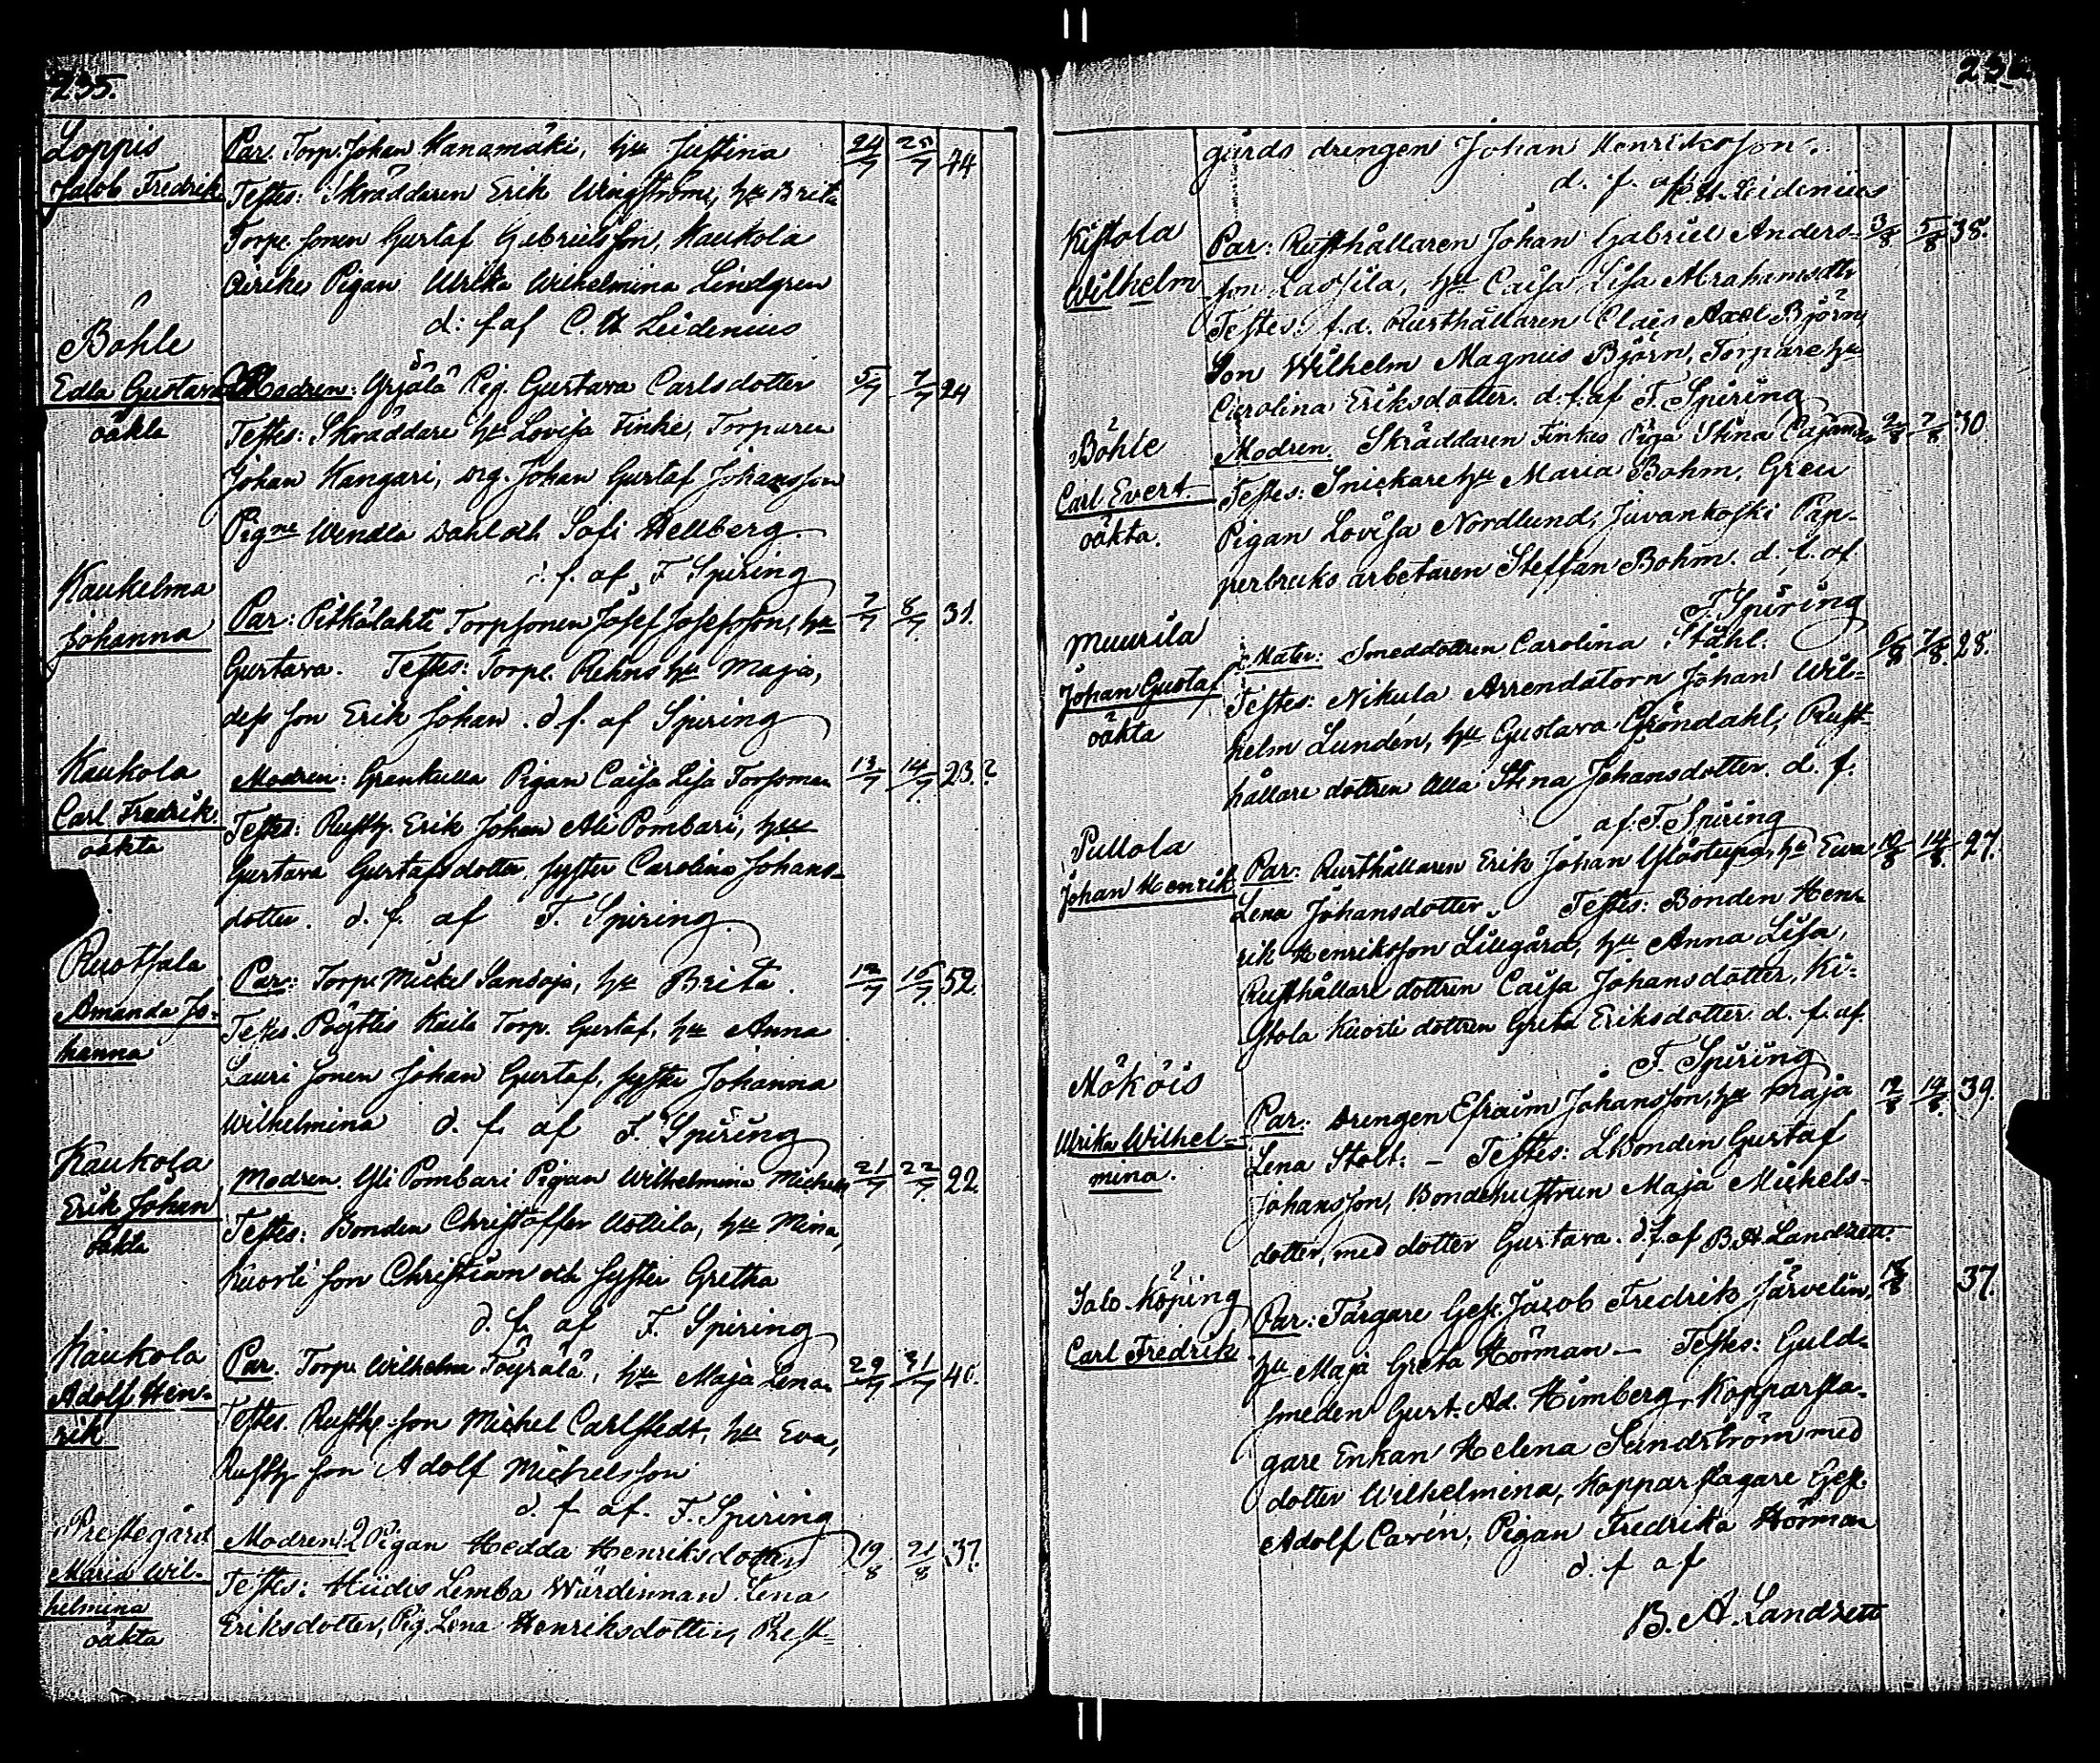 235.
Loppis
Jacob Fredrik
Par. Torp. Johan Kanamäki, hu Justina 24/7 25/7 44
Testes: Skräddaren Erik Wingström, hu Brita
Torpe sonen Gustaf Gabrielsson, Kaukola
Pigan Ulrika Wilhelmina Lindgren
d: f. af C A Leidenius
Böhle
Edla Gustava
oäkta
Modren: Yrjälä Pig. Gustava Carlsdotter 5/7 7/7 24
Testes: Skräddare hu Lovisa Finke, Torparen
Johan Kangari, drg. Johan Gustaf Johansson
Pigne Wendla Dahl och Sofi Hellberg
d. f. af F Spiring
Kaukelma
Johanna
Par: Pitkälahti Torpsonen Josef Josefsson, hu 7/7 8/7 31.
Gustava. Testes: Torpe. Rehns hu Maja,
dess son Erik Johan. d f. af Spiring
Kaukola
Carl Fredrik.
oäkta
Modren: Spenkulla Pigan Caisa Lisa Torsoman 13/7 14/7 23.?
Testes: Rusth. Erik Johan Ali Pombari, hu
Gustava Gustafsdotter, syster Carolina Johans-
dotter. d. f. af F. Spiring
Ruotsala
Amanda Jo-
hanna
Par: Torp. Mickel Sandoja, hu Brita. 12/7 15/7 52.
Testes. Pöytiis Kaila Torp. Gustaf, hu Anna
Lauri sonen Johan Gustaf, syster Johanna
Wilhelmina d. f. af F. Spiring
Kaukola
Erik Johan
oäkta
Modren. Yli Pombari Pigan Wilhelmina Michels 21/7 22/7 22
Testes: Bonden Christoffer Uotila, hu Mina,
Kuorti son Christian och syster Gretha
d. f. af F. Spiring
Kaukola
Adolf Hen-
rik
Par. Torp. Wilhelm Töyrälä, hu Maja Lena 29/7 31/7 40.
Testes. Rusth. son Michel Carlstedt, hu Eva,
Rusth. son Adolf Michelsson
d. f. af. F. Spiring
Prestegård
Maria Wil-
helmina
oäkta
Modren: Pigan Hedda Henriksdotter 19/8 21/8 37.
Testes: Hiidis Lemba Wärdinnan Lena
Eriksdotter, Pig. Lena Henriksdotter, Prest-
gårds drengen Johan Henriksson.
d. f. af C. A. Leidenius
Kistola
Wilhelm
Par: Rusthållaren Johan Gabriel Anders- 3/8 5/8 38.
son Lassila, hu Caisa Lisa Abrahamsdtr
Testes: f.d. Rusthållaren Claes Axel Björn,
Son Wilhelm Magnus Björn, Torpare hu
Carolina Eriksdotter. d. f. af F. Spiring
Böhle
Carl Evert
oäkta.
Modren. Skräddaren Finkes Piga Stina Cajander 2/8 7/8 30
Testes: Snickare hu Maria Bohm, Greu
Pigan Lovisa Nordlund, Juvankoski Pap-
persbruks arbetaren Steffan Bohm. d. f. af
F. Spiring
Muurila
Johan Gustaf
oäkta
Mater: Smeddottren Carolina Ståhl. 6/8 7/8 28.
Testes: Nikula Arrendatorn Johan Wil-
helm Lundén, hu Gustava Gröndahl, Rust-
hållare dottren Ulla Stina Johansdotter. d. f.
af. F. Spiring
Pullola
Johan Henrik
Par: Rusthållaren Erik Johan Ylöstupa, hu Ewa 12/8 14/8 27.
Lena Johansdotter. Testes: Bonden Hen-
rik Henriksson Lillgård, hu Anna Lisa,
Rusthållare dottren Caisa Johansdotter, Ki-
stola Kuorti dottren Greta Eriksdotter d. f. af.
F. Spiring
Mököis
Ulrika Wilhel-
mina.
Par: Drengen Efraim Johansson, hu Maja 12/8 14/8 39.
Lena Stolt. – Testes: LBonden Gustaf
Johansson, Bondehustrun Maja Michels-
dotter, med dotter Gustava. d. f. af B. A. Landzett.
Salo Köping
Carl Fredrik
Par: Färgare Ges. Jacob Fredrik Järvelin, 37.
hu Maja Greta Hörman – Testes: Guld-
smeden Gust. Ad. Himberg, Kopparsla-
gare Enkan Helena Sundström med
dotter Wilhelmina, Kopparslagare Ges.
Adolf Cavén, Pigan Fredrika Hörman
d. f af
B. A. Landzett